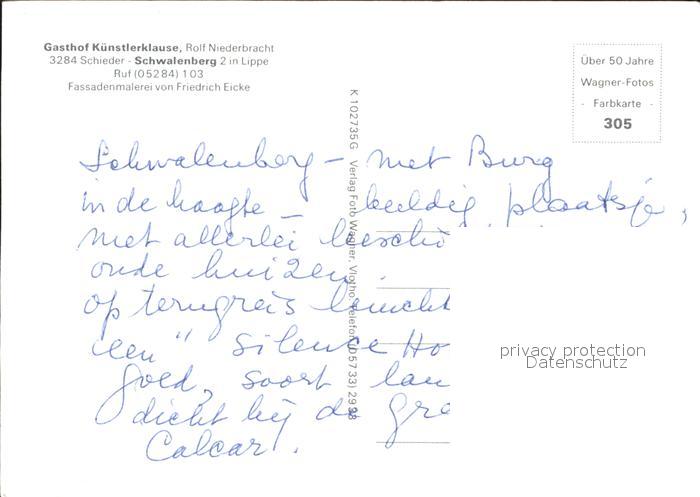 Gasthof Künstlerklause, Rolf Niederbracht
3284 Schieder - Schwalenberg 2 in Lippe
Ruf (05284) 103
Fassadenmalerei von Friedrich Eicke
Über 50 Jahre
Wagner-Fotos
- Farbkarte -
305
K 102735G Verlag Foto Wagner, Vlotho, Telefon (05733) 2998
Schwalenberg - met Burg
in de hoogte - beeldig plaatsje,
met allerlei
oude huizen.
op terugreis
een "Silence Ho
goed, soort lan
dicht bij de Gre
Calcar.
privacy protection
Datenschutz